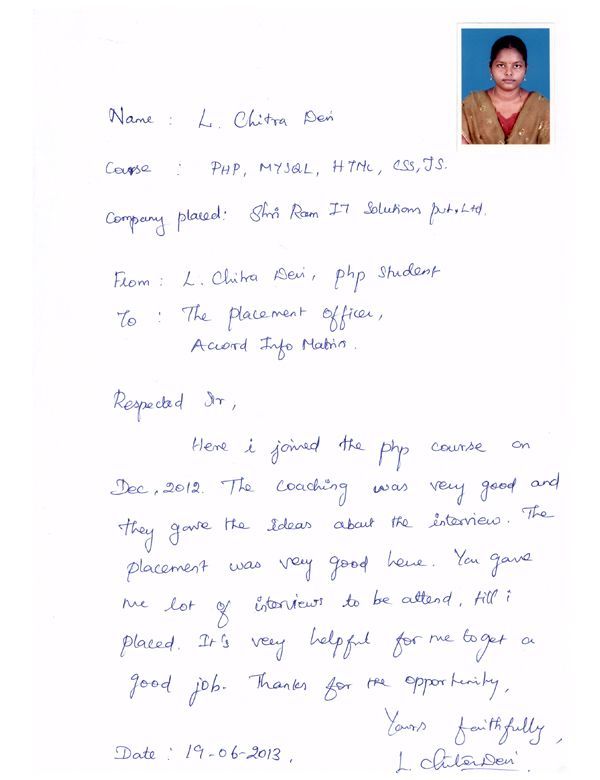 Name : L. Chitra Devi
Course : PHP, MYSQL, HTML, CSS, JS.
Company placed: Shri Ram IT Solutions pvt. Ltd.
From : L. Chitra Devi, php student
To : The placement officer,
Accord Info Matrix.
Respected Sir,
Here i joined the php course on
Dec, 2012. The coaching was very good and
they gave the ideas about the interview. The
placement was very good here. You gave
me lot of interviews to be attend, till i
placed. It's very helpful for me to get a
good job. Thanks for the opportunity,
Yours faithfully,
L. Chitra Devi.
Date : 19-06-2013,